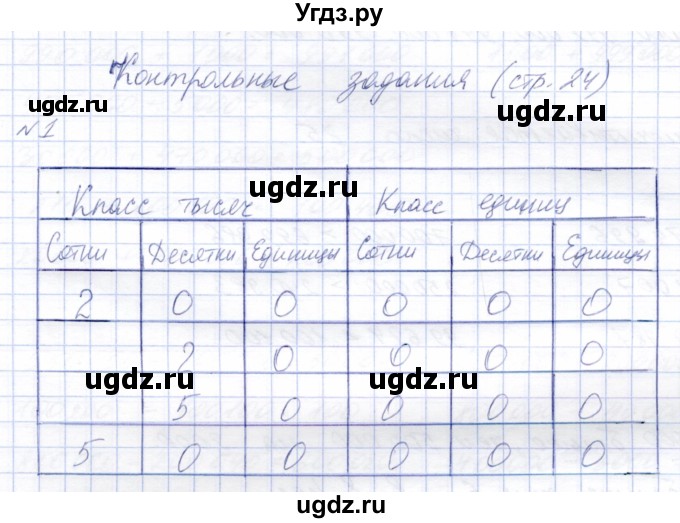 Угдз.ру
Контрольные задания (стр. 24)
ugdz.ru
№1
ugdz.ru
Класс тысяч Класс единиц
Сотни Десятки Единицы Сотни Десятки Единицы
2 0 0 0 0 0
2 0 0 0 0
ugdz.ru ugdz.ru
5 0 0 0 0
5 0 0 0 0 0
ugdz.ru